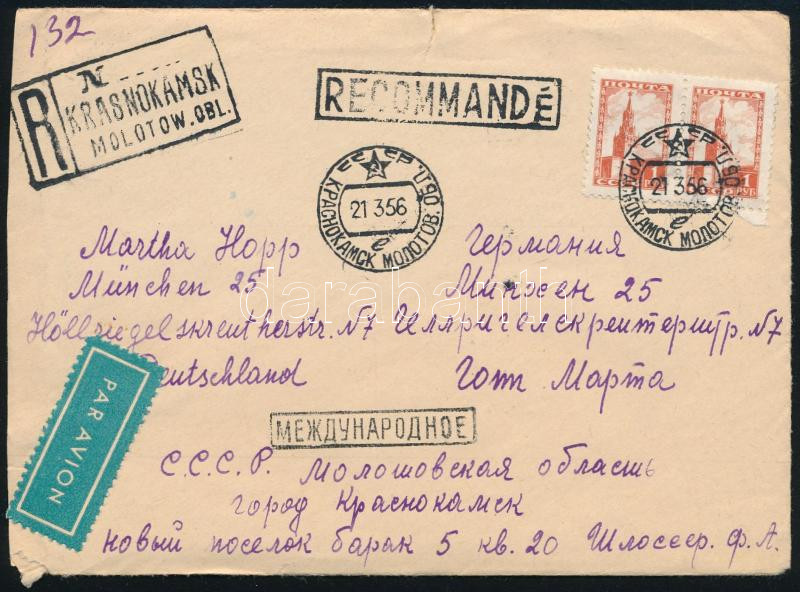 132
R
N
KRASNOKAMSK
MOLOTOW. OBL.
RECOMMANDÉ
ПОЧТА ПОЧТА
1 РУБ
СССР
КРАСНОКАМСК МОЛОТОВ. ОБЛ.
21 3 56
е
КРАСНОКАМСК МОЛОТОВ. ОБЛ.
21 3 56
е
Martha Hopp
München 25
Höllriegelskreutherstr. N7
Deutschland
Германия
Минхен 25
Гелльригелскрейтерштр. N7
Гот Марта
PAR AVION
МЕЖДУНАРОДНОЕ
С.С.С.Р. Молотовская область
город Краснокамск
новый поселок барак 5 кв. 20 Шлоссер. Ф. А.
darabanth